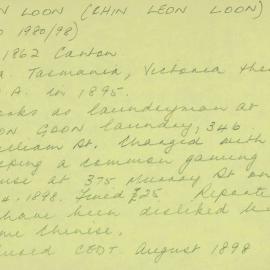 N LOON (CHIN LEON LOON)
1980/98)
1862 Canton.
Tasmania, Victoria then
A. in 1895.
orks as laundryman at
ON GOON laundry, 346
illiam St. Charged with
eping a common gaming
use at 375 Murray St on
4. 1898. Fined £25 Reporte
have been disliked b
me Chinese.
CEDT. August 1898